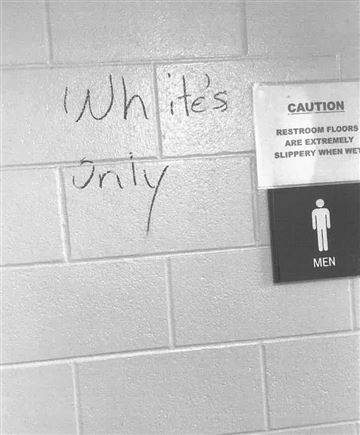 White's
Only
CAUTION
RESTROOM FLOORS
ARE EXTREMELY
SLIPPERY WHEN WET
MEN